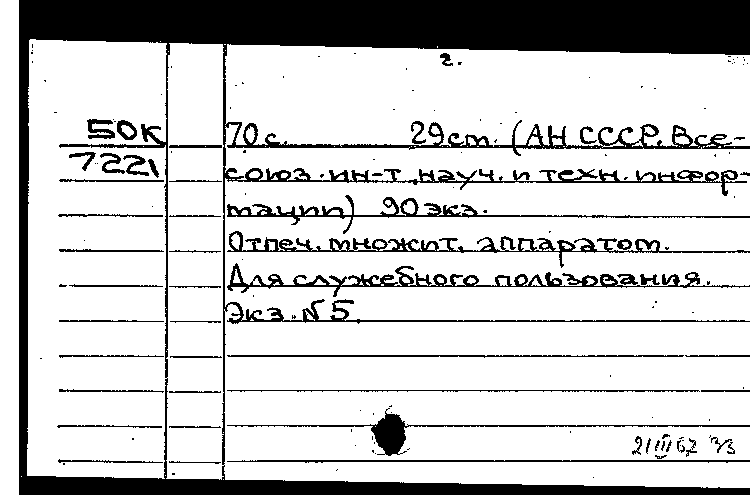 2.
50К 70 с. 29 см. (АН СССР. Все-
7221 союз. ин-т науч. и техн. инфор-
мации) 90 экз.
Отпеч. множит. аппаратом.
Для служебного пользования.
Экз. № 5.
21 III 67